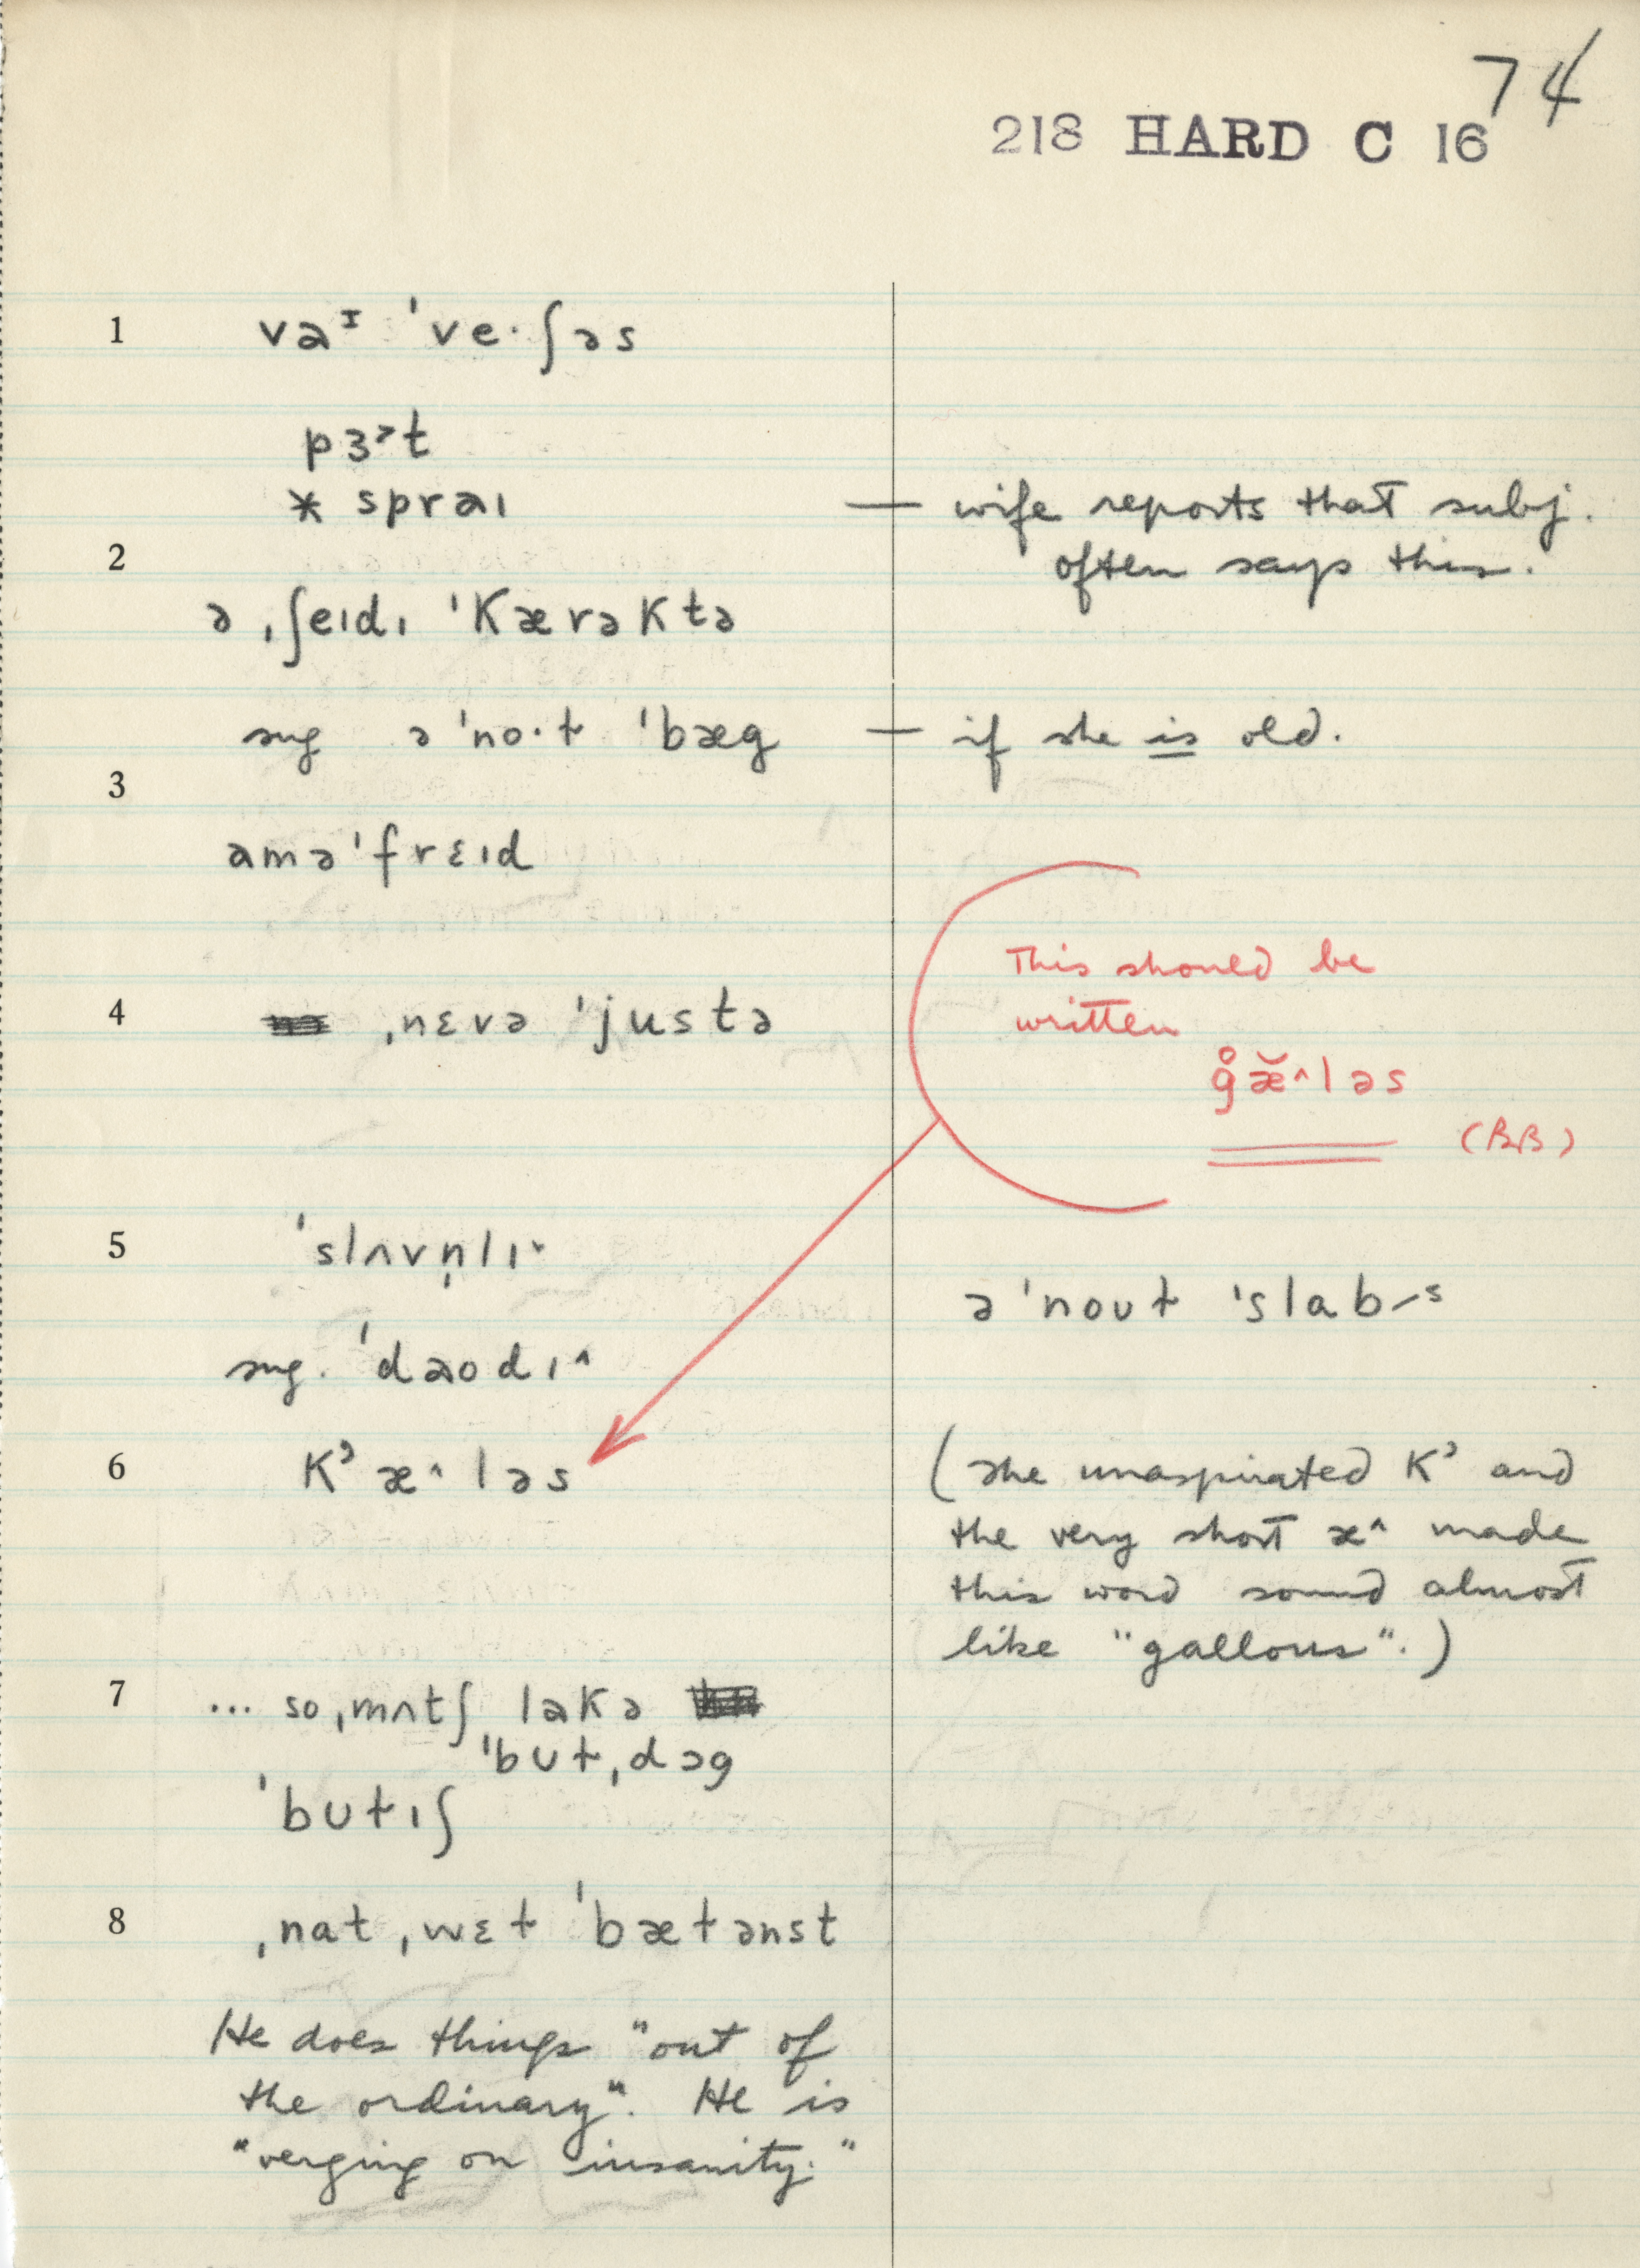 74
218 HARD C 16
1 vaᶦ 've·ʃəs
pɜ˞t
* spraɪ — wife reports that subj.
often says this.
2
ə ˌʃeɪdɪ 'kærəktə
sug ə 'no·ɫ 'bæg — if she is old.
3
amə'frɛɪd
This should be
written
4 ˌnɛvə 'justə
g̊æ̆^ləs
(BB)
5 'slʌvn̩lɪˇ
ə 'noʊɫ 'slab-s
sug. 'daodɪ^
6 K’æ^ləs (The unaspirated K’ and
the very short æ^ made
this word sound almost
like "gallous".)
7 ... so ˌmʌtʃ lakə
'bʊɫˌdɔg
'bʊɫɪʃ
8 ˌnat ˌwɛɫ 'bæɫənst
He does things "out of
the ordinary". He is
"verging on insanity."